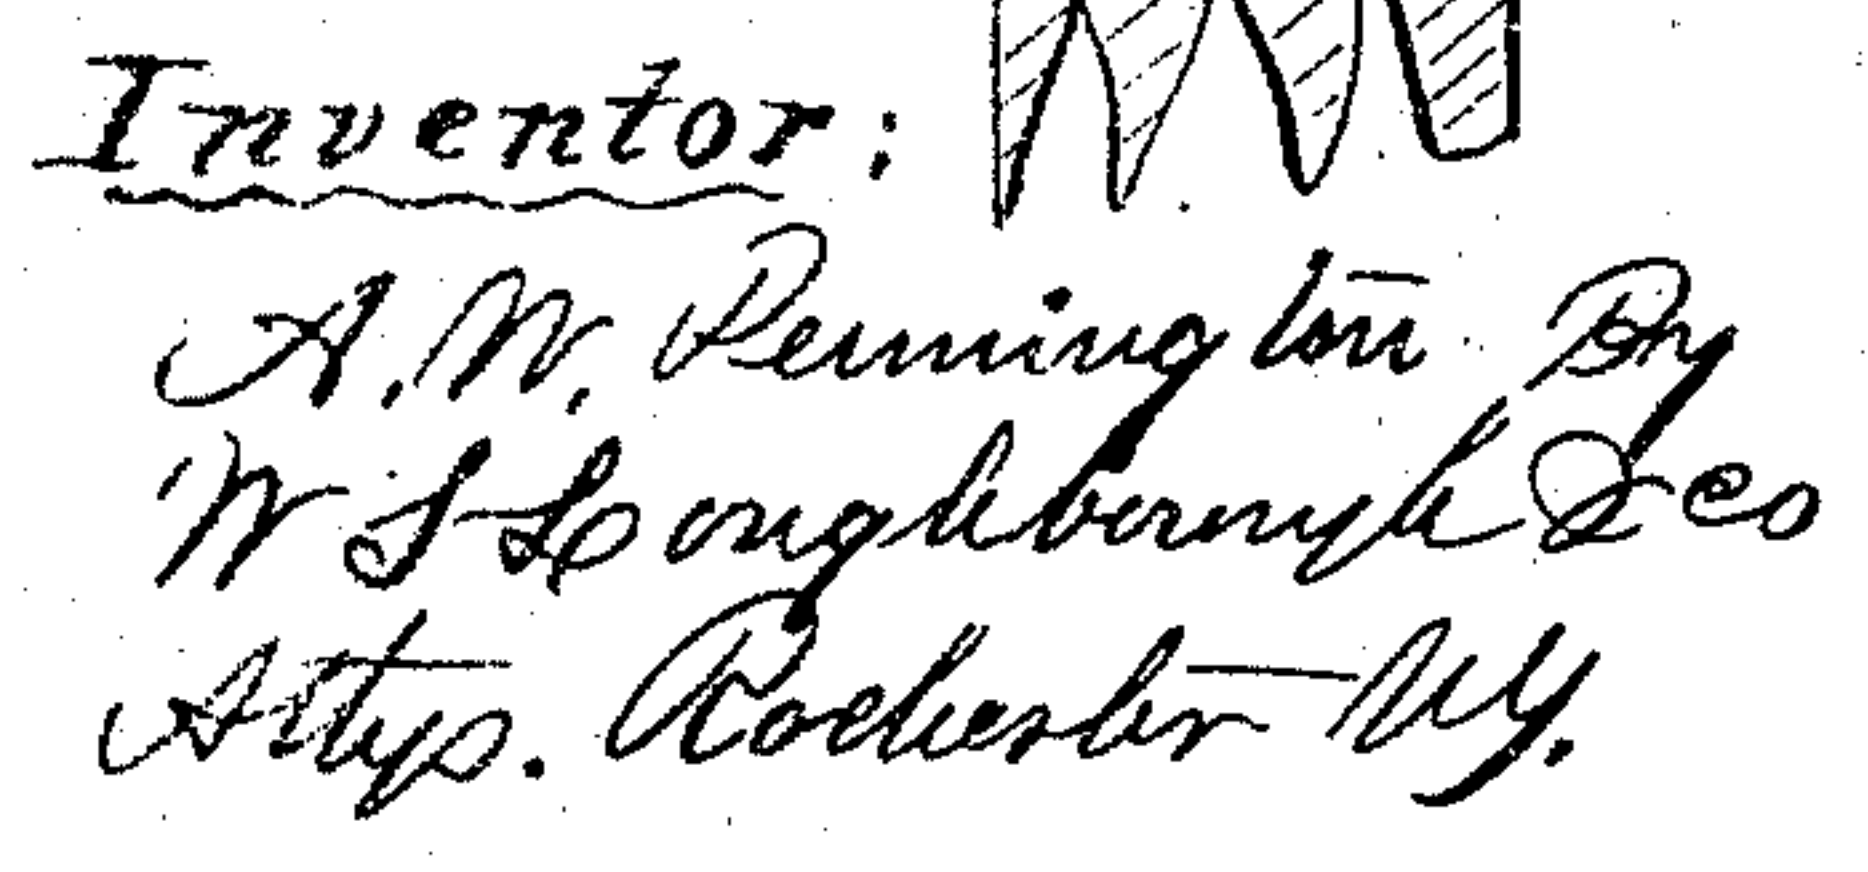 Inventor:
A. W. Pennington By
W S Loughborough & co
Attys. Rochester NY.